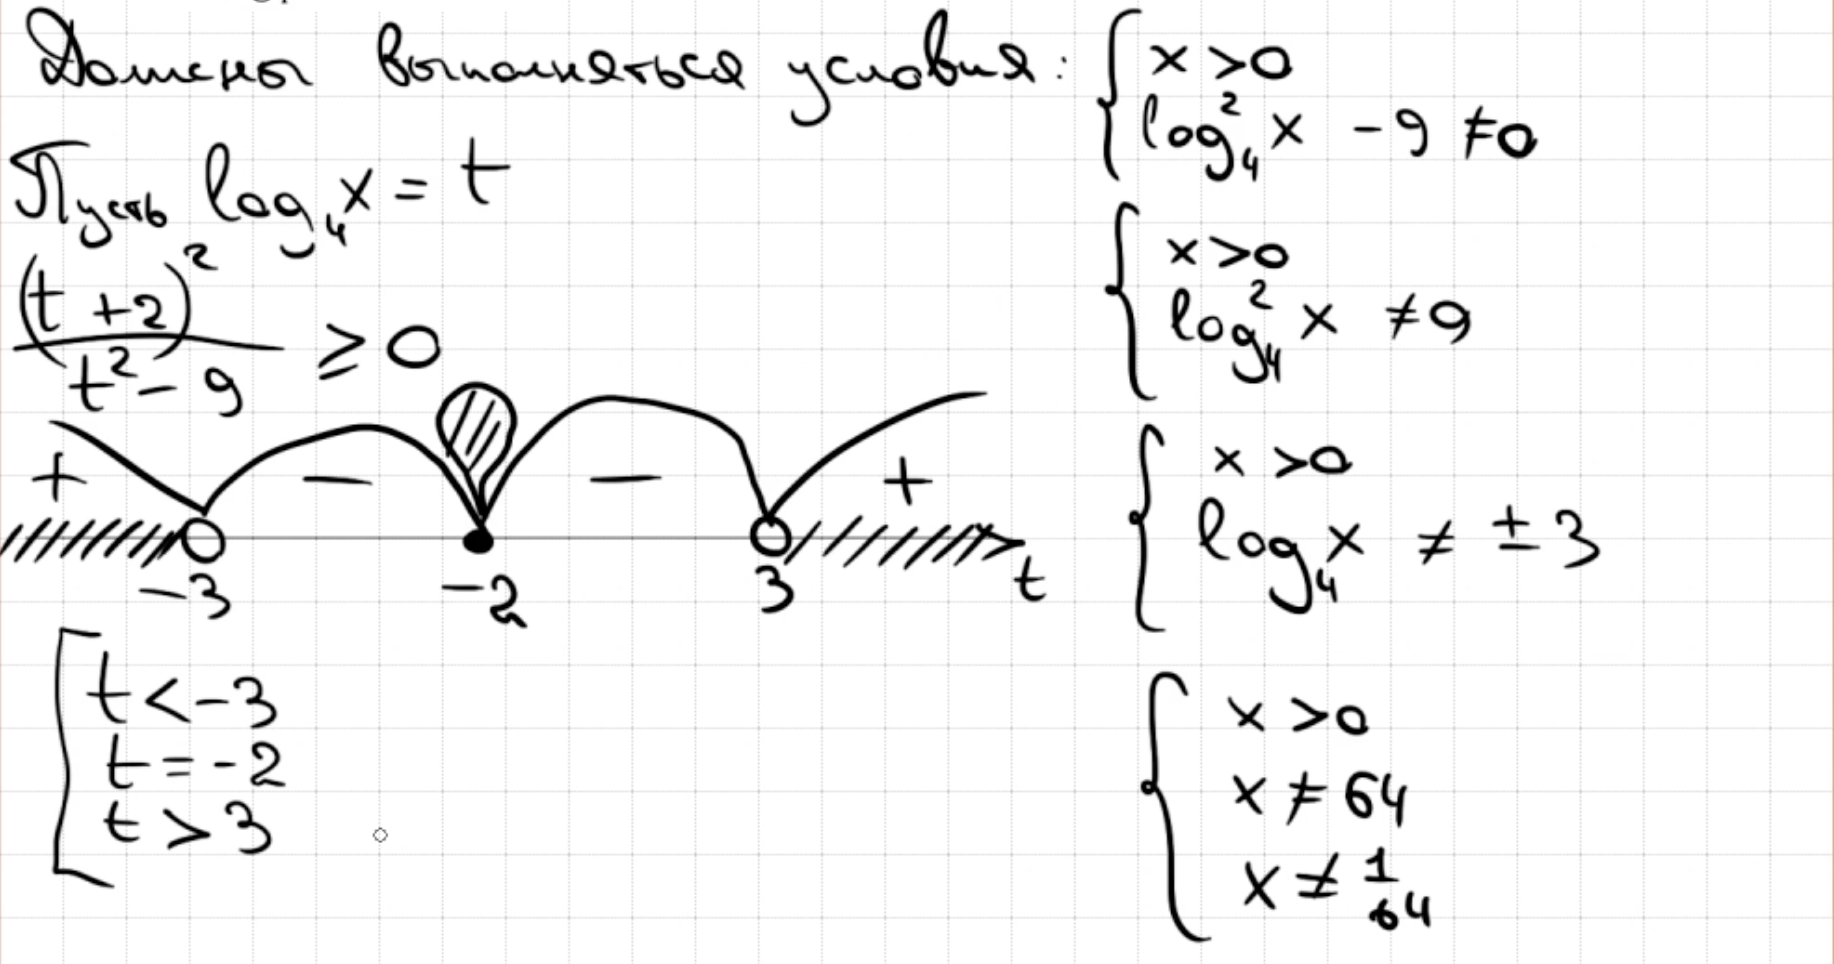 Должны выполняться условия:
{ x > 0
log₄² x - 9 ≠ 0
Пусть log₄ x = t
(t + 2)² / (t² - 9) ≥ 0
{ x > 0
log₄² x ≠ 9
+ − − +
-3 -2 3 t
{ x > 0
log₄ x ≠ ± 3
[ t < -3
t = -2
t > 3
{ x > 0
x ≠ 64
x ≠ 1/64